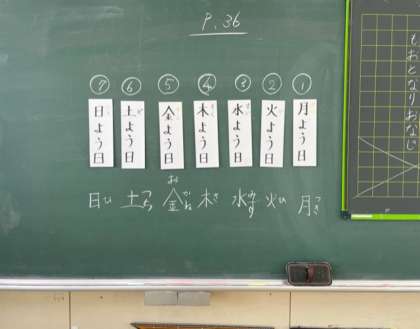 P.36
① 月よう日
② 火よう日
③ 水よう日
④ 木よう日
⑤ 金よう日
⑥ 土よう日
⑦ 日よう日
月 つき
火 ひ
水 みず
木 き
お金 かね
土 つち
日 ひ
もおとなりおなじ